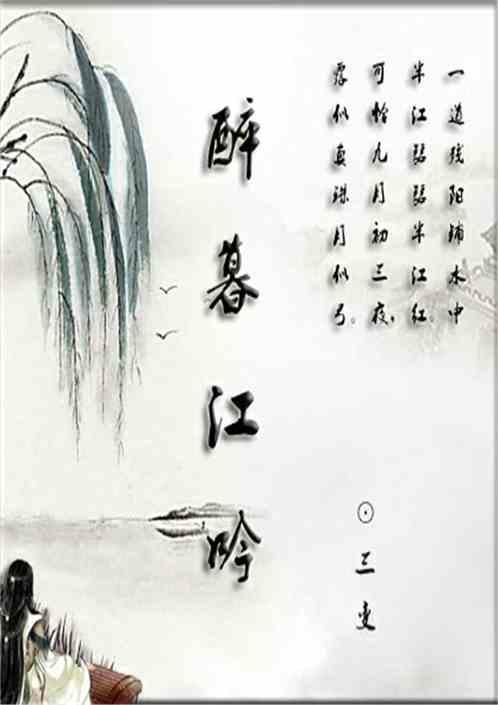 一道残阳铺水中
半江瑟瑟半江红.
可怜九月初三夜,
露似真珠月似弓。
醉暮江吟
⊙三变